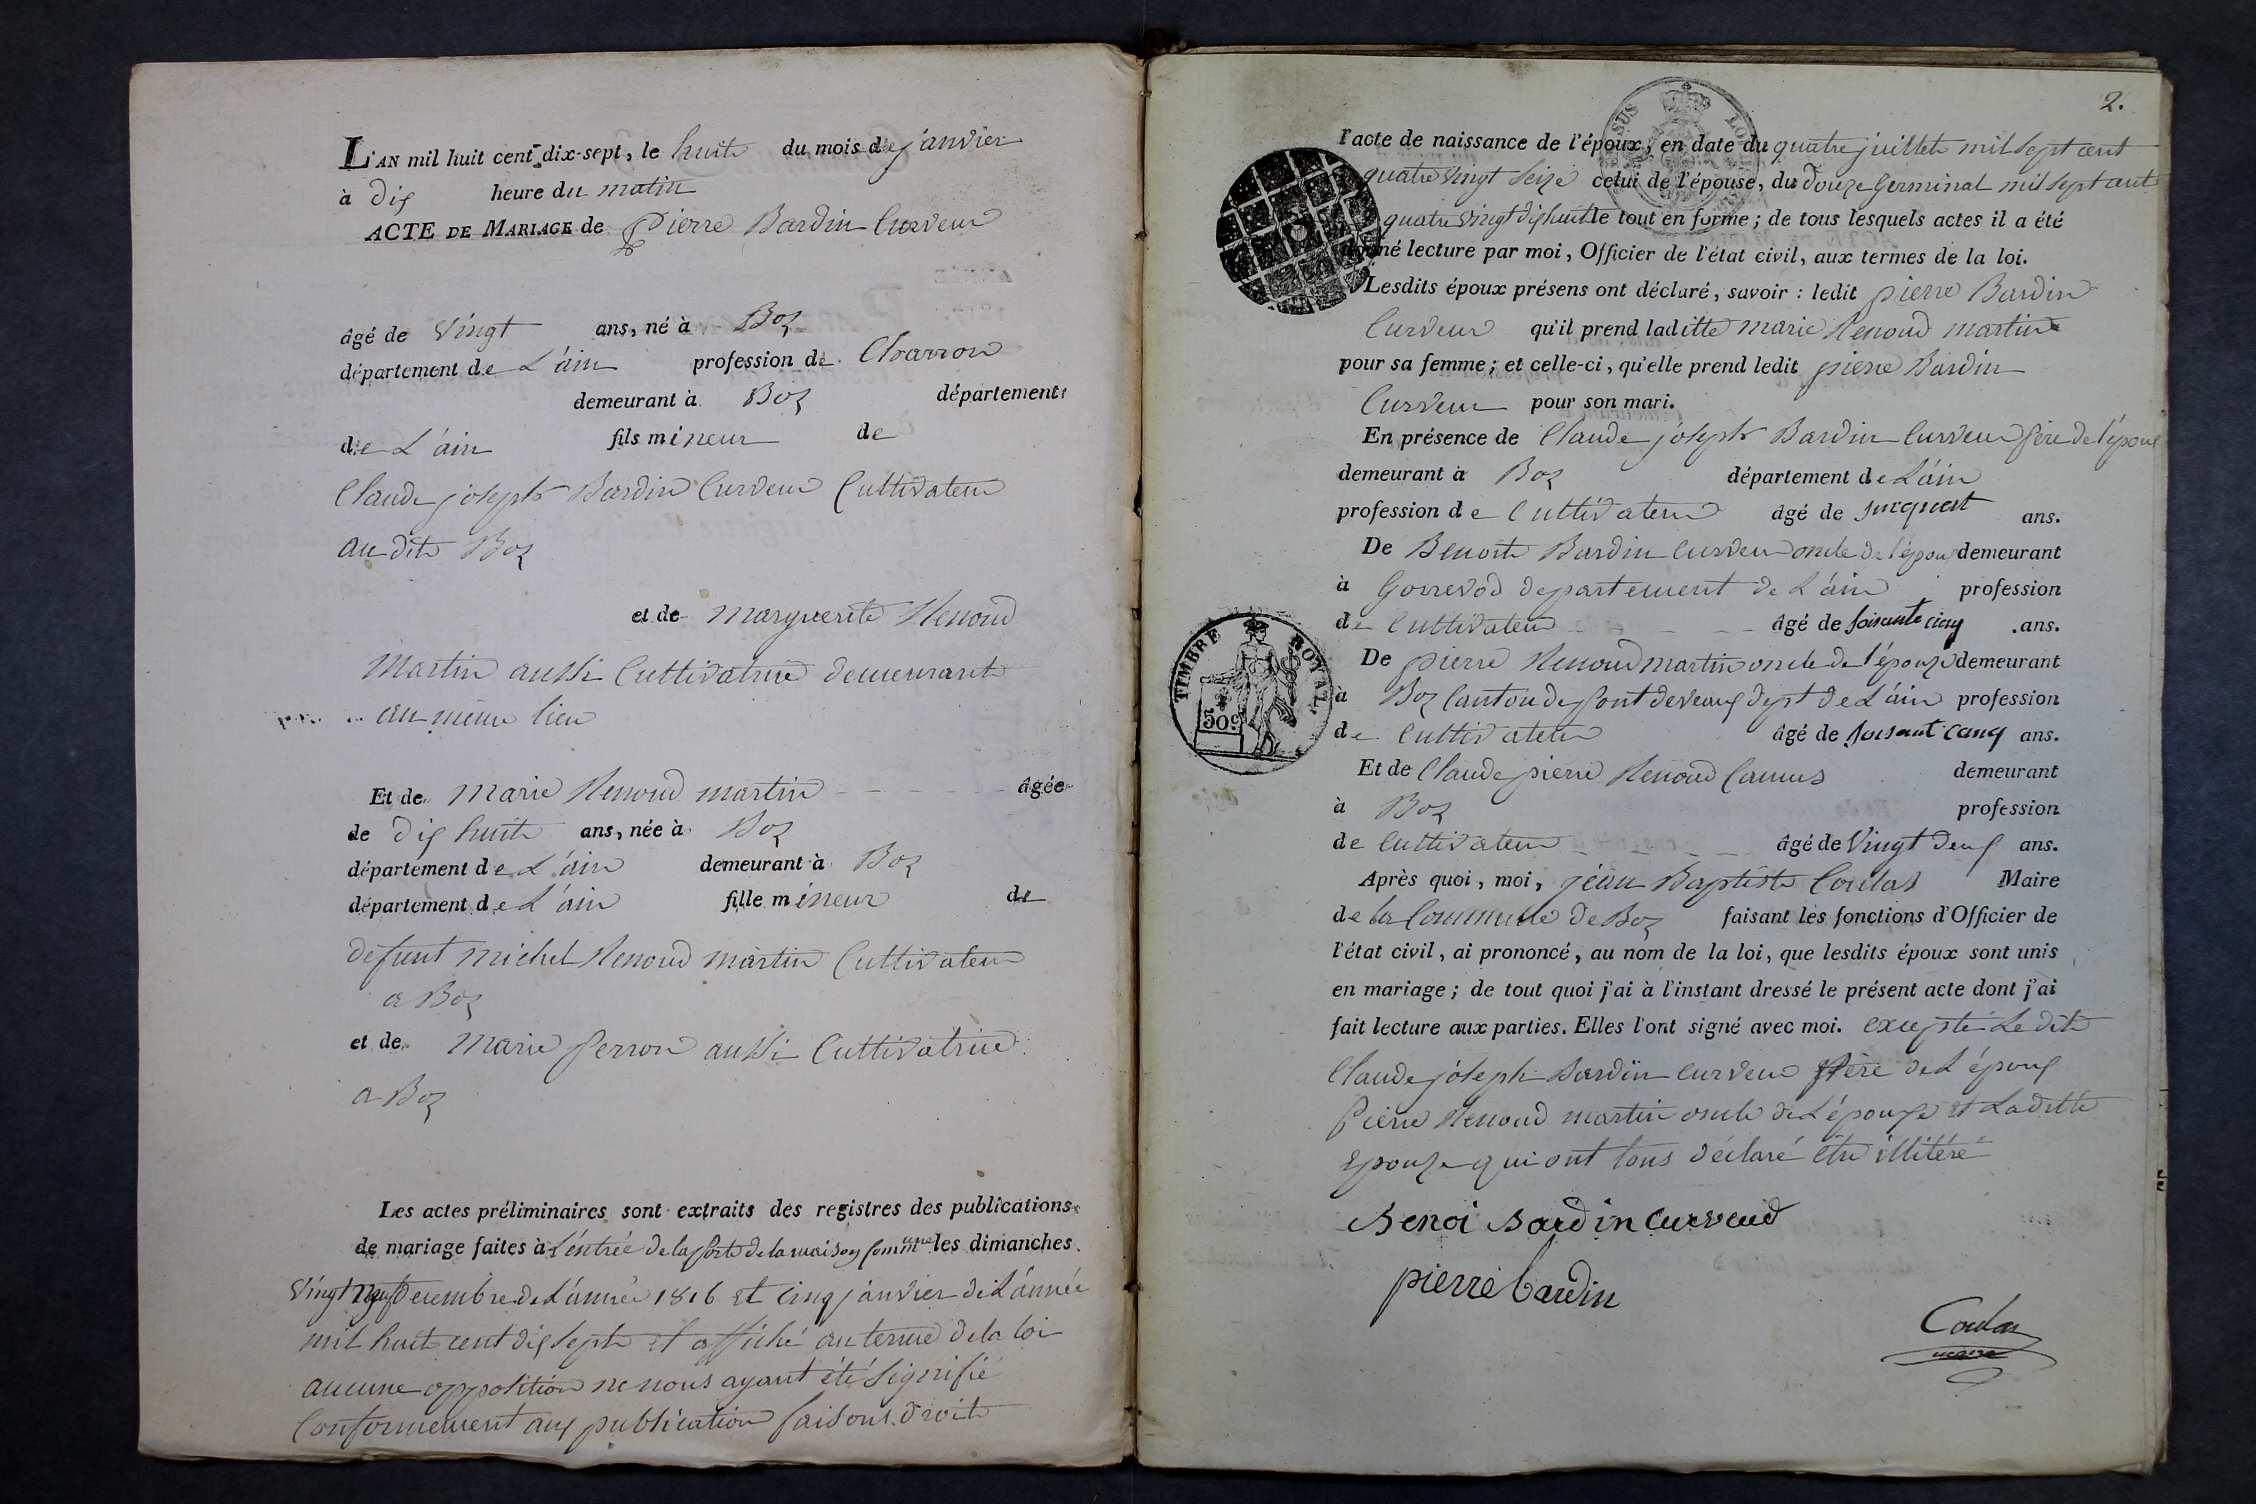 L'AN mil huit cent dix-sept, le huit du mois de janvier
à dix heure du matin
ACTE DE MARIAGE de Pierre Bardin Curveur
âgé de vingt ans, né à Boz
département de L'ain profession de Charron
demeurant à Boz département
de L'ain fils mineur de
Claude joseph Bardin Curveur Cultivateur
au dit Boz
et de marguerite Renoud
Martin aussi Cultivatrice demeurante
au même lieu
Et de marie Renoud martin âgée
de dix huit ans, née à Boz
département de L'ain demeurant à Boz
département de L'ain fille mineur de
défunt michel Renoud martin Cultivateur
a Boz
et de marie ferron aussi Cultivatrice
a Boz
Les actes préliminaires sont extraits des registres des publications
de mariage faites à L'entrée de la porte de la maison commune les dimanches
vingt neuf Decembre de L'année 1816 et cinq janvier de L'année
mil huit cent dix sept et affiché au terme de la loi
aucune opposition ne nous ayant été signifié
Conformement aux publication faisons droit
2.
l'acte de naissance de l'époux, en date du quatre juillet mil sept cent
quatre vingt seize celui de l'épouse, du douze Germinal mil sept cent
quatre vingt dix huit le tout en forme; de tous lesquels actes il a été
donné lecture par moi, Officier de l'état civil, aux termes de la loi.
Lesdits époux présens ont déclaré, savoir : ledit pierre Bardin
Curveur qu'il prend laditte marie Renoud martin
pour sa femme; et celle-ci, qu'elle prend ledit pierre Bardin
Curveur pour son mari.
En présence de Claude joseph Bardin Curveur père de l'époux
demeurant à Boz département de L'ain
profession de Cultivateur âgé de ans.
De Benoit Bardin curveur oncle de l'époux demeurant
à Gorrevod departement de L'ain profession
de Cultivateur âgé de soisante cinq ans.
De pierre Renoud martin oncle de l'épouze demeurant
à Boz Canton de pont de veaux dept de L'ain profession
de Cultivateur âgé de soisant cenq ans.
Et de Claude pierre Renoud Camus demeurant
à Boz profession
de Cultivateur âgé de vingt deux ans.
Après quoi, moi, jean Baptiste Coulas Maire
de la Commune de Boz faisant les fonctions d'Officier de
l'état civil, ai prononcé, au nom de la loi, que lesdits époux sont unis
en mariage; de tout quoi j'ai à l'instant dressé le présent acte dont j'ai
fait lecture aux parties. Elles l'ont signé avec moi. excepté Le dit
Claude joseph Bardin curveur père de L'époux
Pierre Renoud martin oncle de L'épouze et Laditte
Epouze qui ont tous déclaré être illitéré
Benoi Bardin Curveud
pierre bardin
Coulas
maire
TIMBRE ROYAL
50c